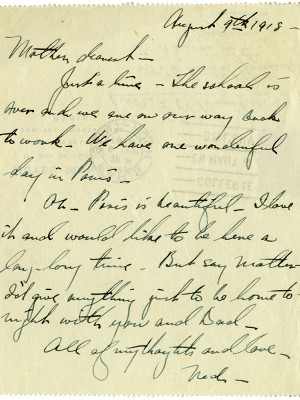 August 9th 1918 -
Mother dearest -
Just a line - The school is
over and we are on our way back
to work - We have one wonderful
day in Paris -
Oh - Paris is beautiful - I love
it and would like to be here a
long long time - But say Mother
I'd give anything just to be home to
night with you and Dad -
All of my thoughts and love -
Ned -